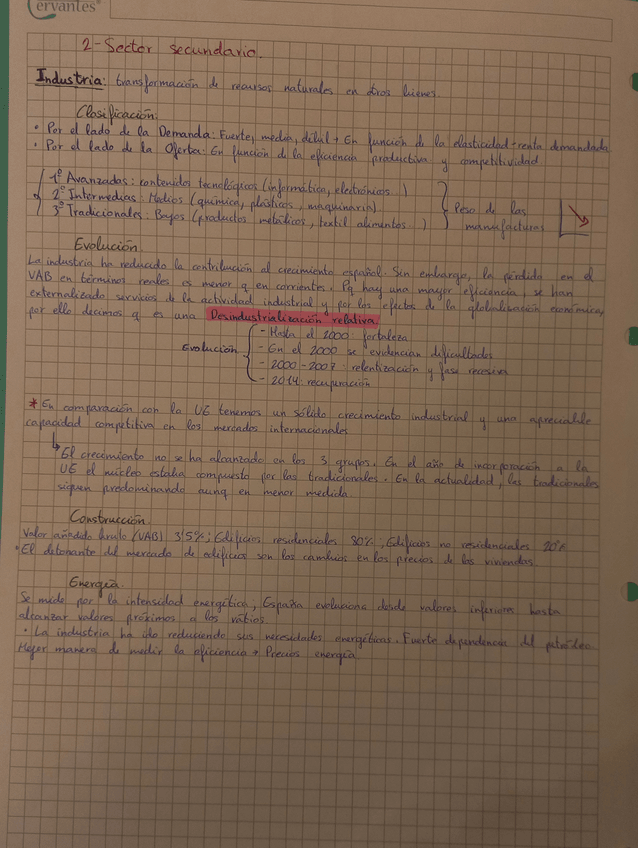 Cervantes
2-Sector secundario.
Industria: transformación de recursos naturales en otros bienes.
Clasificación:
• Por el lado de la Demanda: Fuerte, media, débil → En función de la elasticidad-renta demandada
• Por el lado de la Oferta: En función de la eficiencia productiva y competitividad
1º Avanzados: contenidos tecnológicos (informática, electrónicos)
2º Intermedias: Medios (química, plásticos, maquinaria)
3º Tradicionales: Bajos (productos metálicos, textil alimentos)
Peso de las
manufacturas
Evolución
La industria ha reducido la contribución al crecimiento español. Sin embargo, la pérdida en el
VAB en términos reales es menor q en corrientes. Pq hay una mayor eficiencia, se han
externalizado servicios de la actividad industrial y por los efectos de la globalización económica,
por ello decimos q es una Desindustrialización relativa.
Evolución
- Hasta el 2000: fortaleza
- En el 2000 se evidencian dificultades
- 2000-2007: relentización y fase recesiva
- 2014: recuperación
* En comparación con la UE tenemos un sólido crecimiento industrial y una apreciable
capacidad competitiva en los mercados internacionales
↳ El crecimiento no se ha alcanzado en los 3 grupos. En el año de incorporación a la
UE el núcleo estaba compuesto por las tradicionales. En la actualidad, las tradicionales
siguen predominando aunq en menor medida.
Construcción
Valor añadido bruto (VAB) 3'5%; Edificios residenciales 80%; Edificios no residenciales 20%
• El detonante del mercado de edificios son los cambios en los precios de las viviendas.
Energía.
Se mide por la intensidad energética, España evoluciona desde valores inferiores hasta
alcanzar valores próximos a los
• La industria ha ido reduciendo sus necesidades energéticas. Fuerte dependencia del petróleo.
Mejor manera de medir la eficiencia → Precios energía